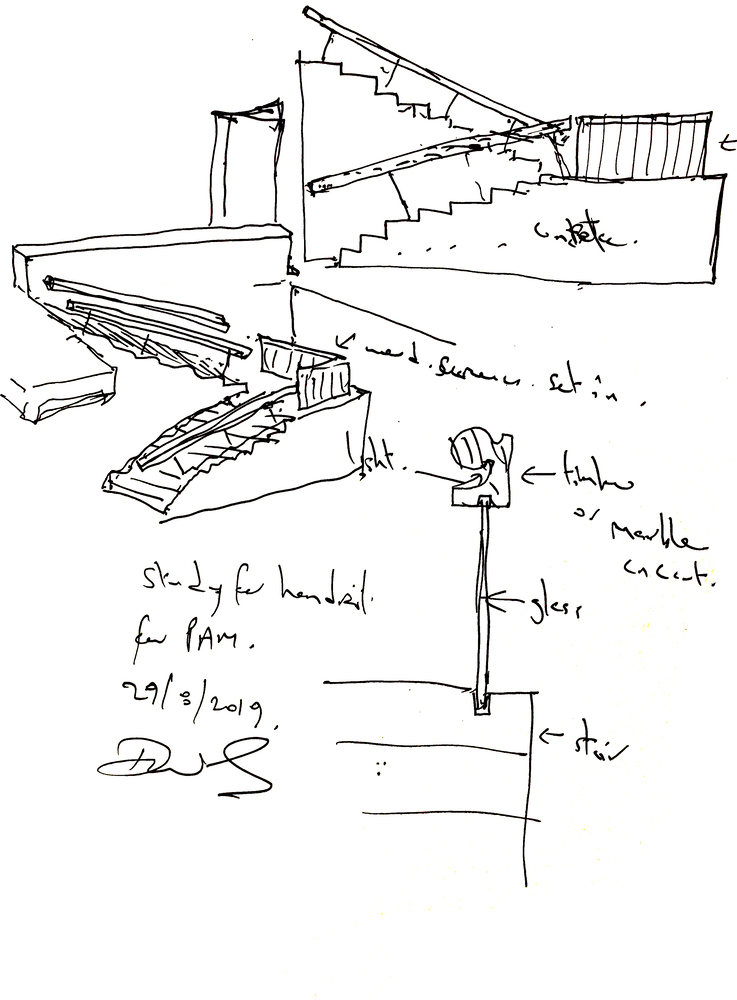 concrete.
set in.
light.
timber
or
marble
glass
study for handrail.
for PAM.
29/8/2019.
stair